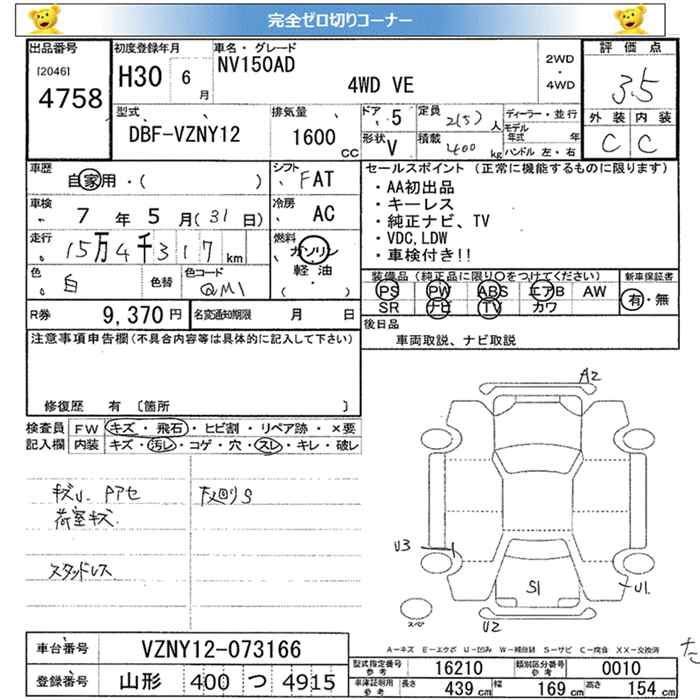 完全ゼロ切りコーナー
出品番号
[2046]
4758
初度登録年月
H30 6 月
車名・グレード
NV150AD
4WD VE
2WD
・
4WD
評価点
3.5
外装 内装
C C
型式
DBF-VZNY12
排気量
1600 CC
ドア 5
形状 V
定員 2(5) 人
積載 400 kg
ディーラー・並行
モデル年式 年
ハンドル 左・右
車歴
自家用・( )
シフト FAT
車検
7 年 5 月 (31 日)
冷房 AC
走行 15万4千317 km
燃料
ガソリン
軽油
( ・ )
色 白 色替
色コード QM1
R券 9,370 円
名変通知期限 月 日
セールスポイント (正常に機能するものに限ります)
・AA初出品
・キーレス
・純正ナビ、TV
・VDC,LDW
・車検付き!!
装備品 (純正品に限り○をつけてください)
新車保証書
PS PW ABS エアB AW
SR ナビ TV カワ
有・無
後日品
車両取説、ナビ取説
注意事項申告欄 (不具合内容等は具体的に記入して下さい)
修復歴 有 〔箇所 〕
検査員記入欄
FW キズ・飛石・ヒビ割・リペア跡・×要
内装 キズ・汚レ・コゲ・穴・スレ・キレ・破レ
キズU Pアセ
荷室キズ
スタッドレス
下廻りS
A2
U3
U1
S1
U2
スペア
A-キズ E-エクボ U-凹み W-補修跡 S-サビ C-腐食 XX-交換済
車台番号 VZNY12-073166
登録番号 山形 400 つ 4915
型式指定番号 参考 16210
類別区分番号 参考 0010
車庫証明用 参考 長さ 439 cm 幅 169 cm 高さ 154 cm